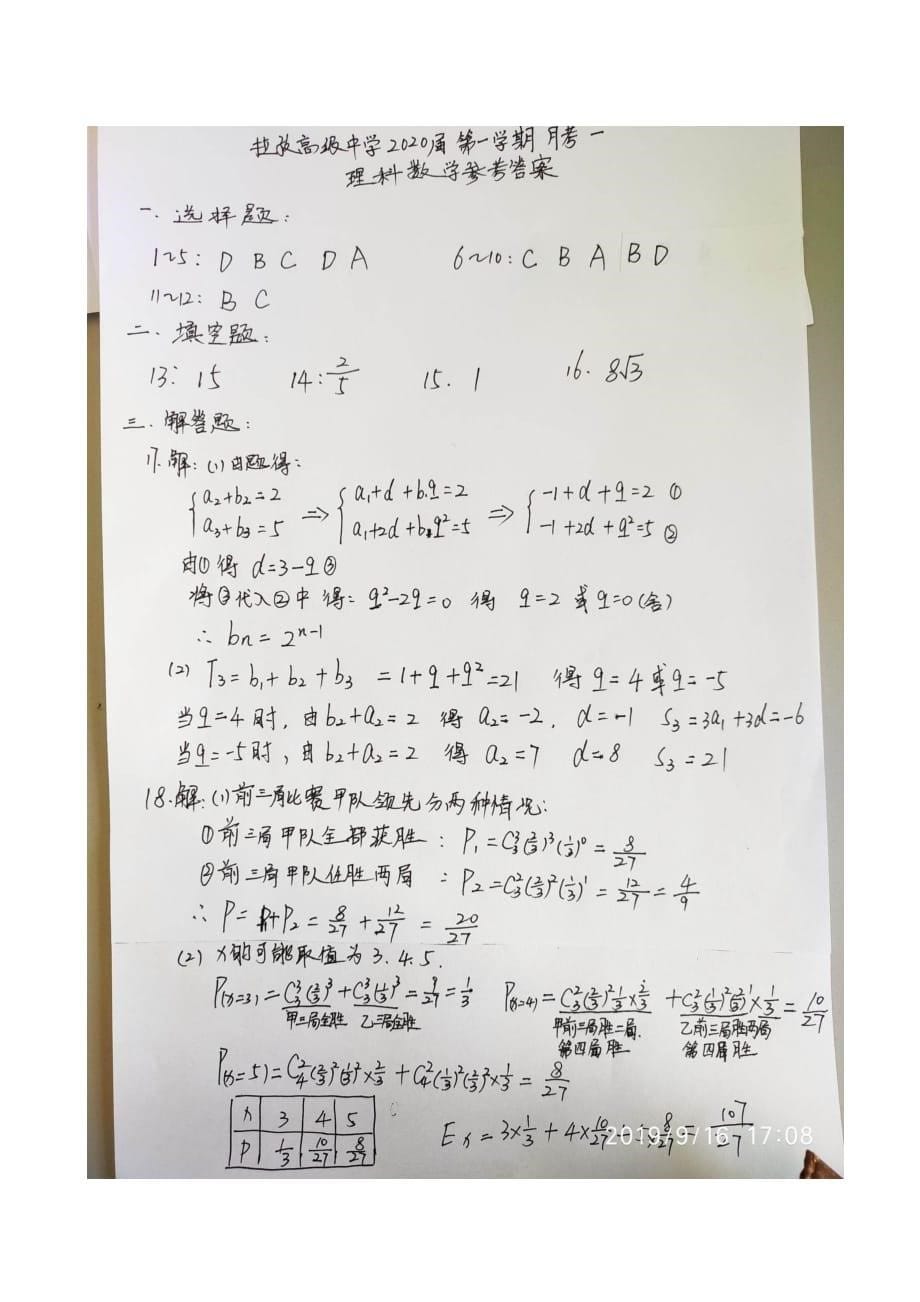 拉孜高级中学2020届第一学期月考一
理科数学参考答案
一. 选择题:
1~5: D B C D A 6~10: C B A B D
11~12: B C
二. 填空题:
13: 15 14: 2/5 15. 1 16. 8√3
三. 解答题:
17.解: (1) 由题得:
{a₂+b₂=2 ⇒ {a₁+d+b₁q=2 ⇒ {-1+d+q=2 ①
a₃+b₃=5 a₁+2d+b₁q²=5 -1+2d+q²=5 ②
由①得 d=3-q ③
将③代入②中 得: q²-2q=0 得 q=2 或 q=0(舍)
∴ bn = 2ⁿ⁻¹
(2) T₃=b₁+b₂+b₃ =1+q+q²=21 得 q=4 或 q=-5
当q=4时, 由b₂+a₂=2 得 a₂=-2. d=-1 S₃=3a₁+3d=-6
当q=-5时, 由b₂+a₂=2 得 a₂=7 d=8 S₃=21
18.解: (1) 前三局比赛甲队领先分两种情况:
①前三局甲队全部获胜: P₁=C₃³(2/3)³(1/3)⁰=8/27
②前三局甲队任胜两局: P₂=C₃²(2/3)²(1/3)¹=12/27=4/9
∴ P=P₁+P₂=8/27+12/27=20/27
(2) x的可能取值为3.4.5.
P(x=3)=C₃³(2/3)³+C₃³(1/3)³=9/27=1/3 P(x=4)=C₃²(2/3)²1/3×2/3+C₃²(1/3)²(2/3)¹×1/3=10/27
甲三局全胜 乙三局全胜 甲前三局胜二局. 乙前三局胜两局
第四局胜 第四局胜
P(x=5)=C₄²(2/3)²(1/3)²×2/3+C₄²(1/3)²(2/3)²×1/3=8/27
x 3 4 5
P 1/3 10/27 8/27
Ex=3×1/3+4×10/27+5×8/27=107/27
2019/9/16 17:08